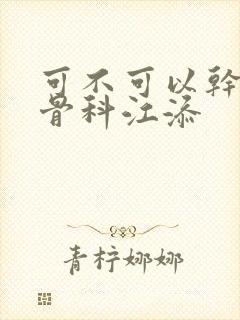 可不可以幹
骨科江添
青柠娜娜